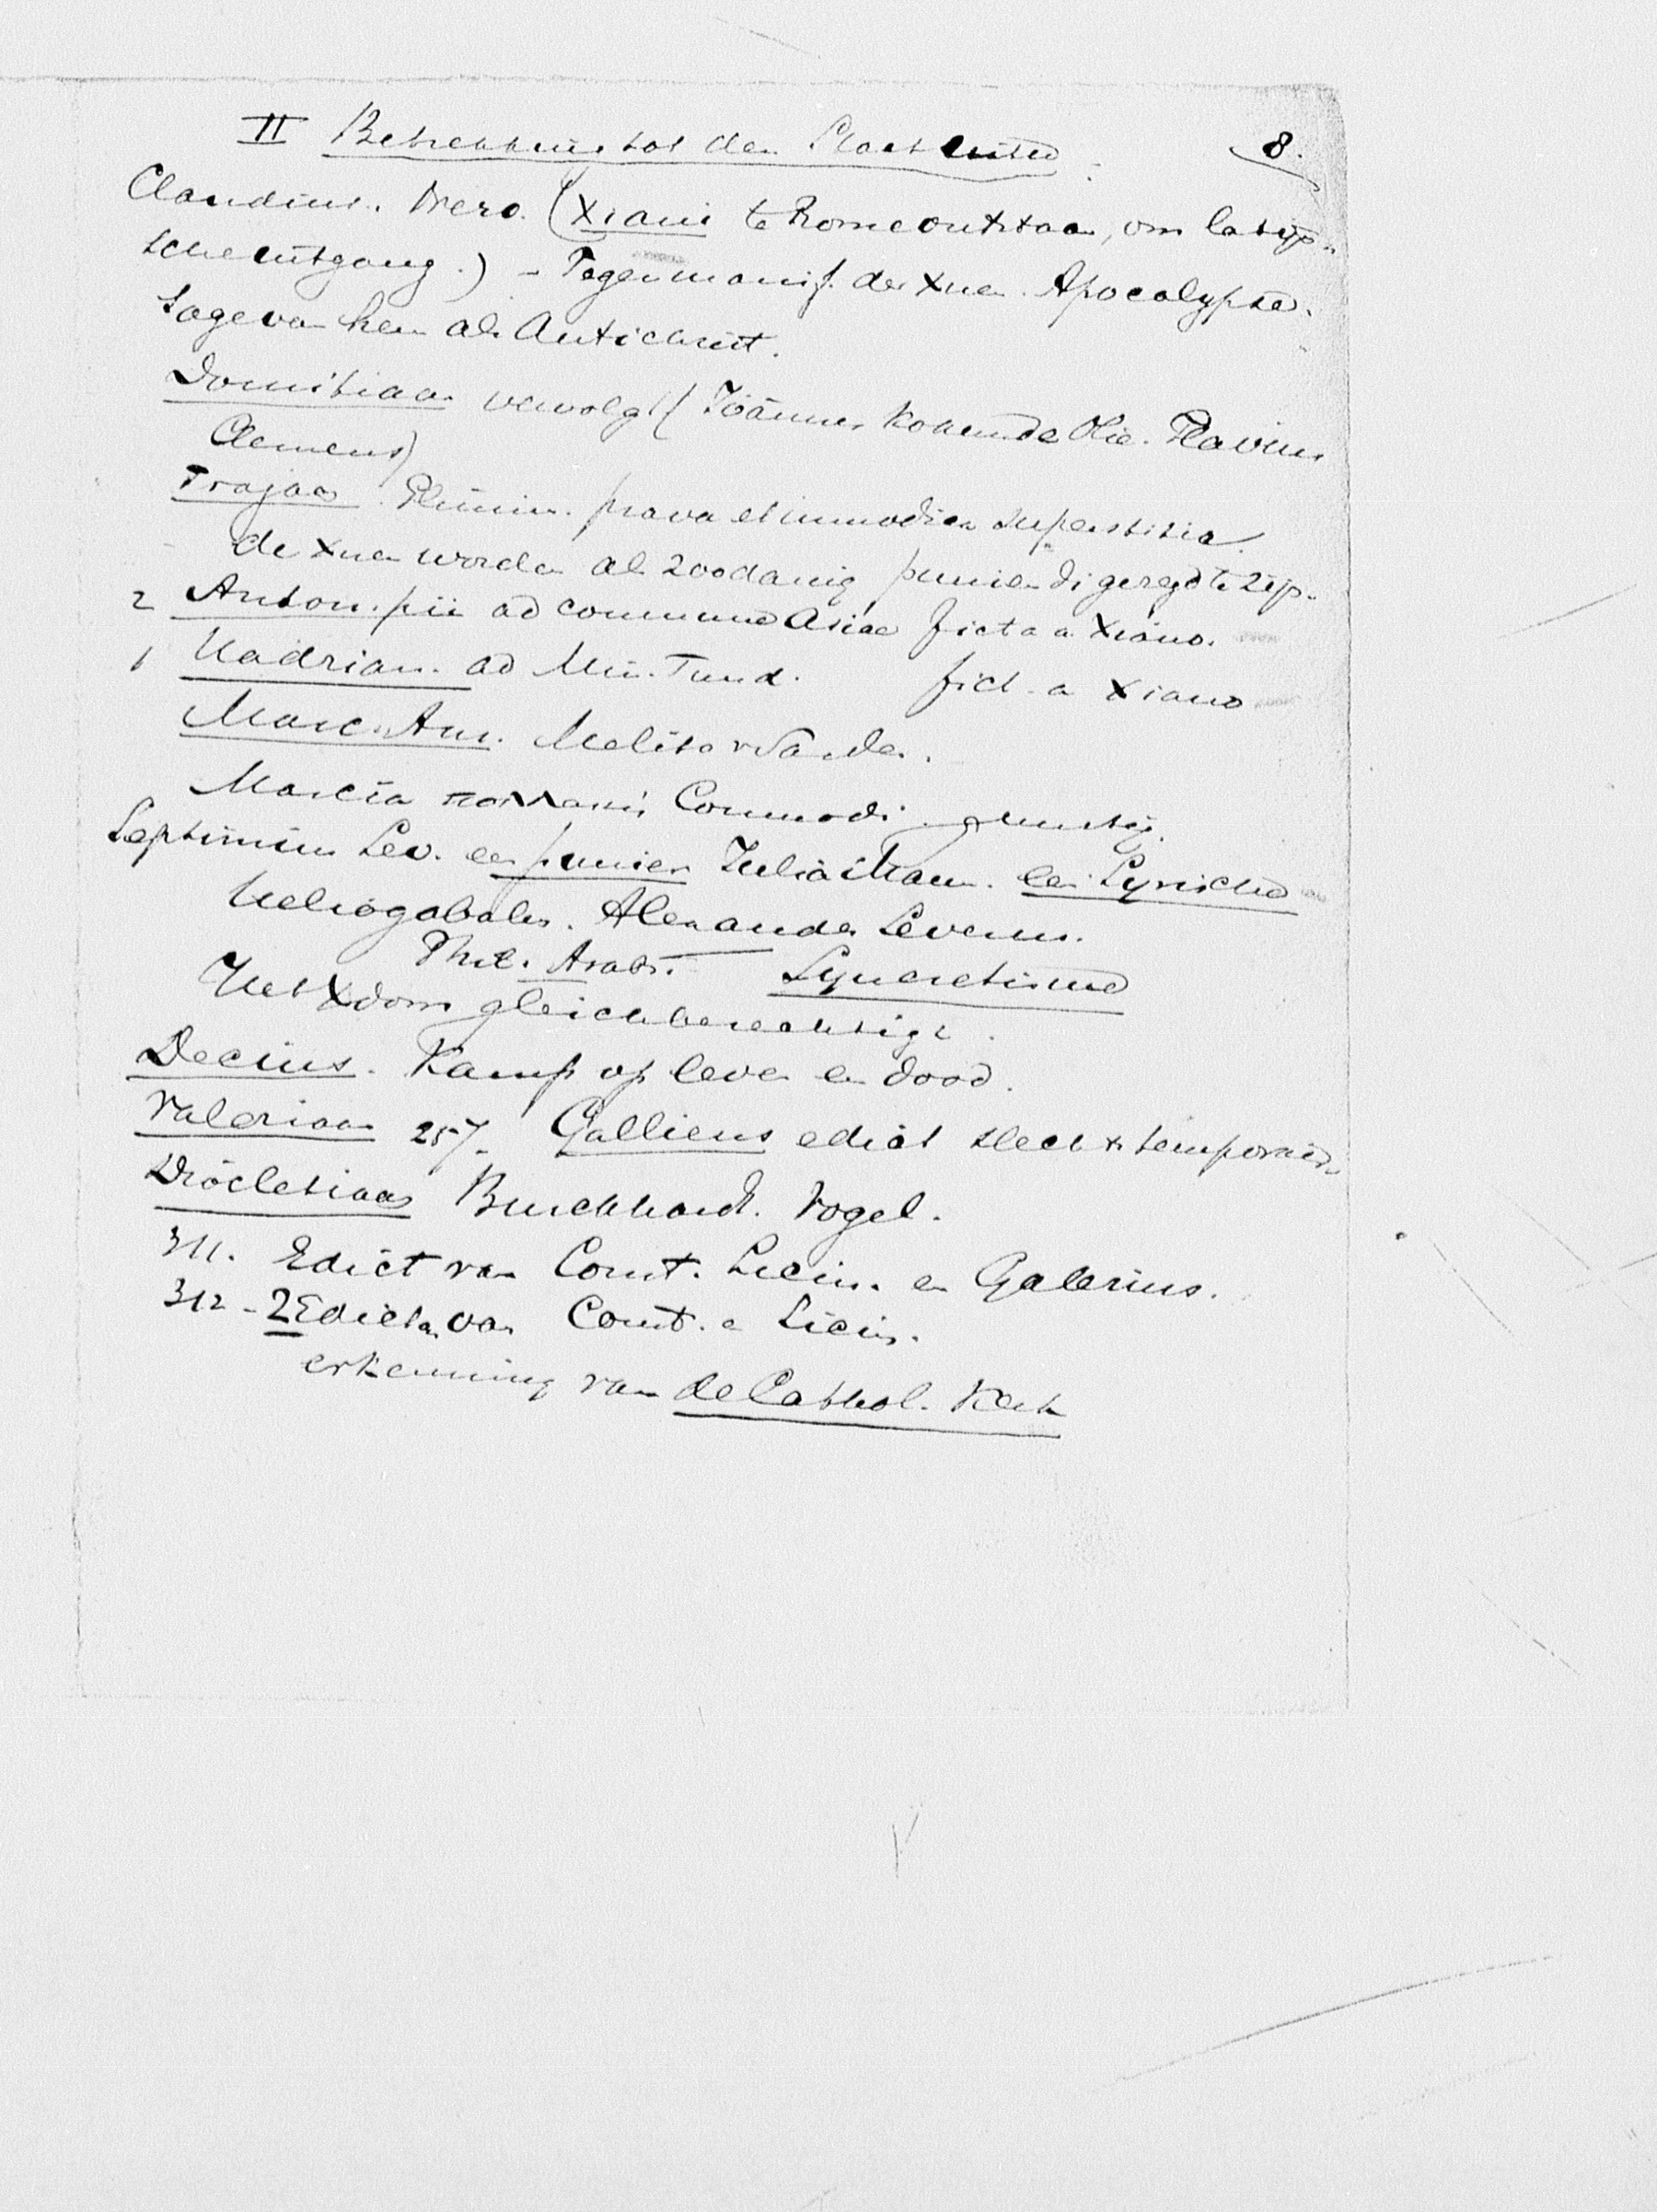 II Betrekking tot den Staat buiten 8.
Claudius. Nero. (Xiani te Rome ontstaan, om latijn-
sche uitgang.) - Tegenmanif. der Xnen. Apocalypse.
Sage van hem als Antichrist.
Domitiaan vervolgt (Joännes kokende Olie. Flavius
Clemens)
Trajaan. Plinius. prava et immodica superstitio.
de Xnen worden als zoodanig puniendi gezegd te zijn.
2 Anton. pii ad commune Asiae ficta a Xiano.
1 Hadrian. ad Min. Fund. fict. a Xiano
Marc. Aur. Melito v Sardes.
Marcia Commodi gunstig.
Septimius Sev. een punier Julia Mam. een Syrische
Heliogabalus. Alexander Severus.
Phil. Arabs. Syncretisme
Het Xdom gleichberechtigt.
Decius. Kamp op leven en dood.
Valeriaan 257. Galliens edict slechts temporair
Diocletiaan Burckhardt. Vogel.
311. Edict van Const. Licin. en Galerius.
312 - 2 Edicten van Const. en Licin.
erkenning van de Cathol. Kerk